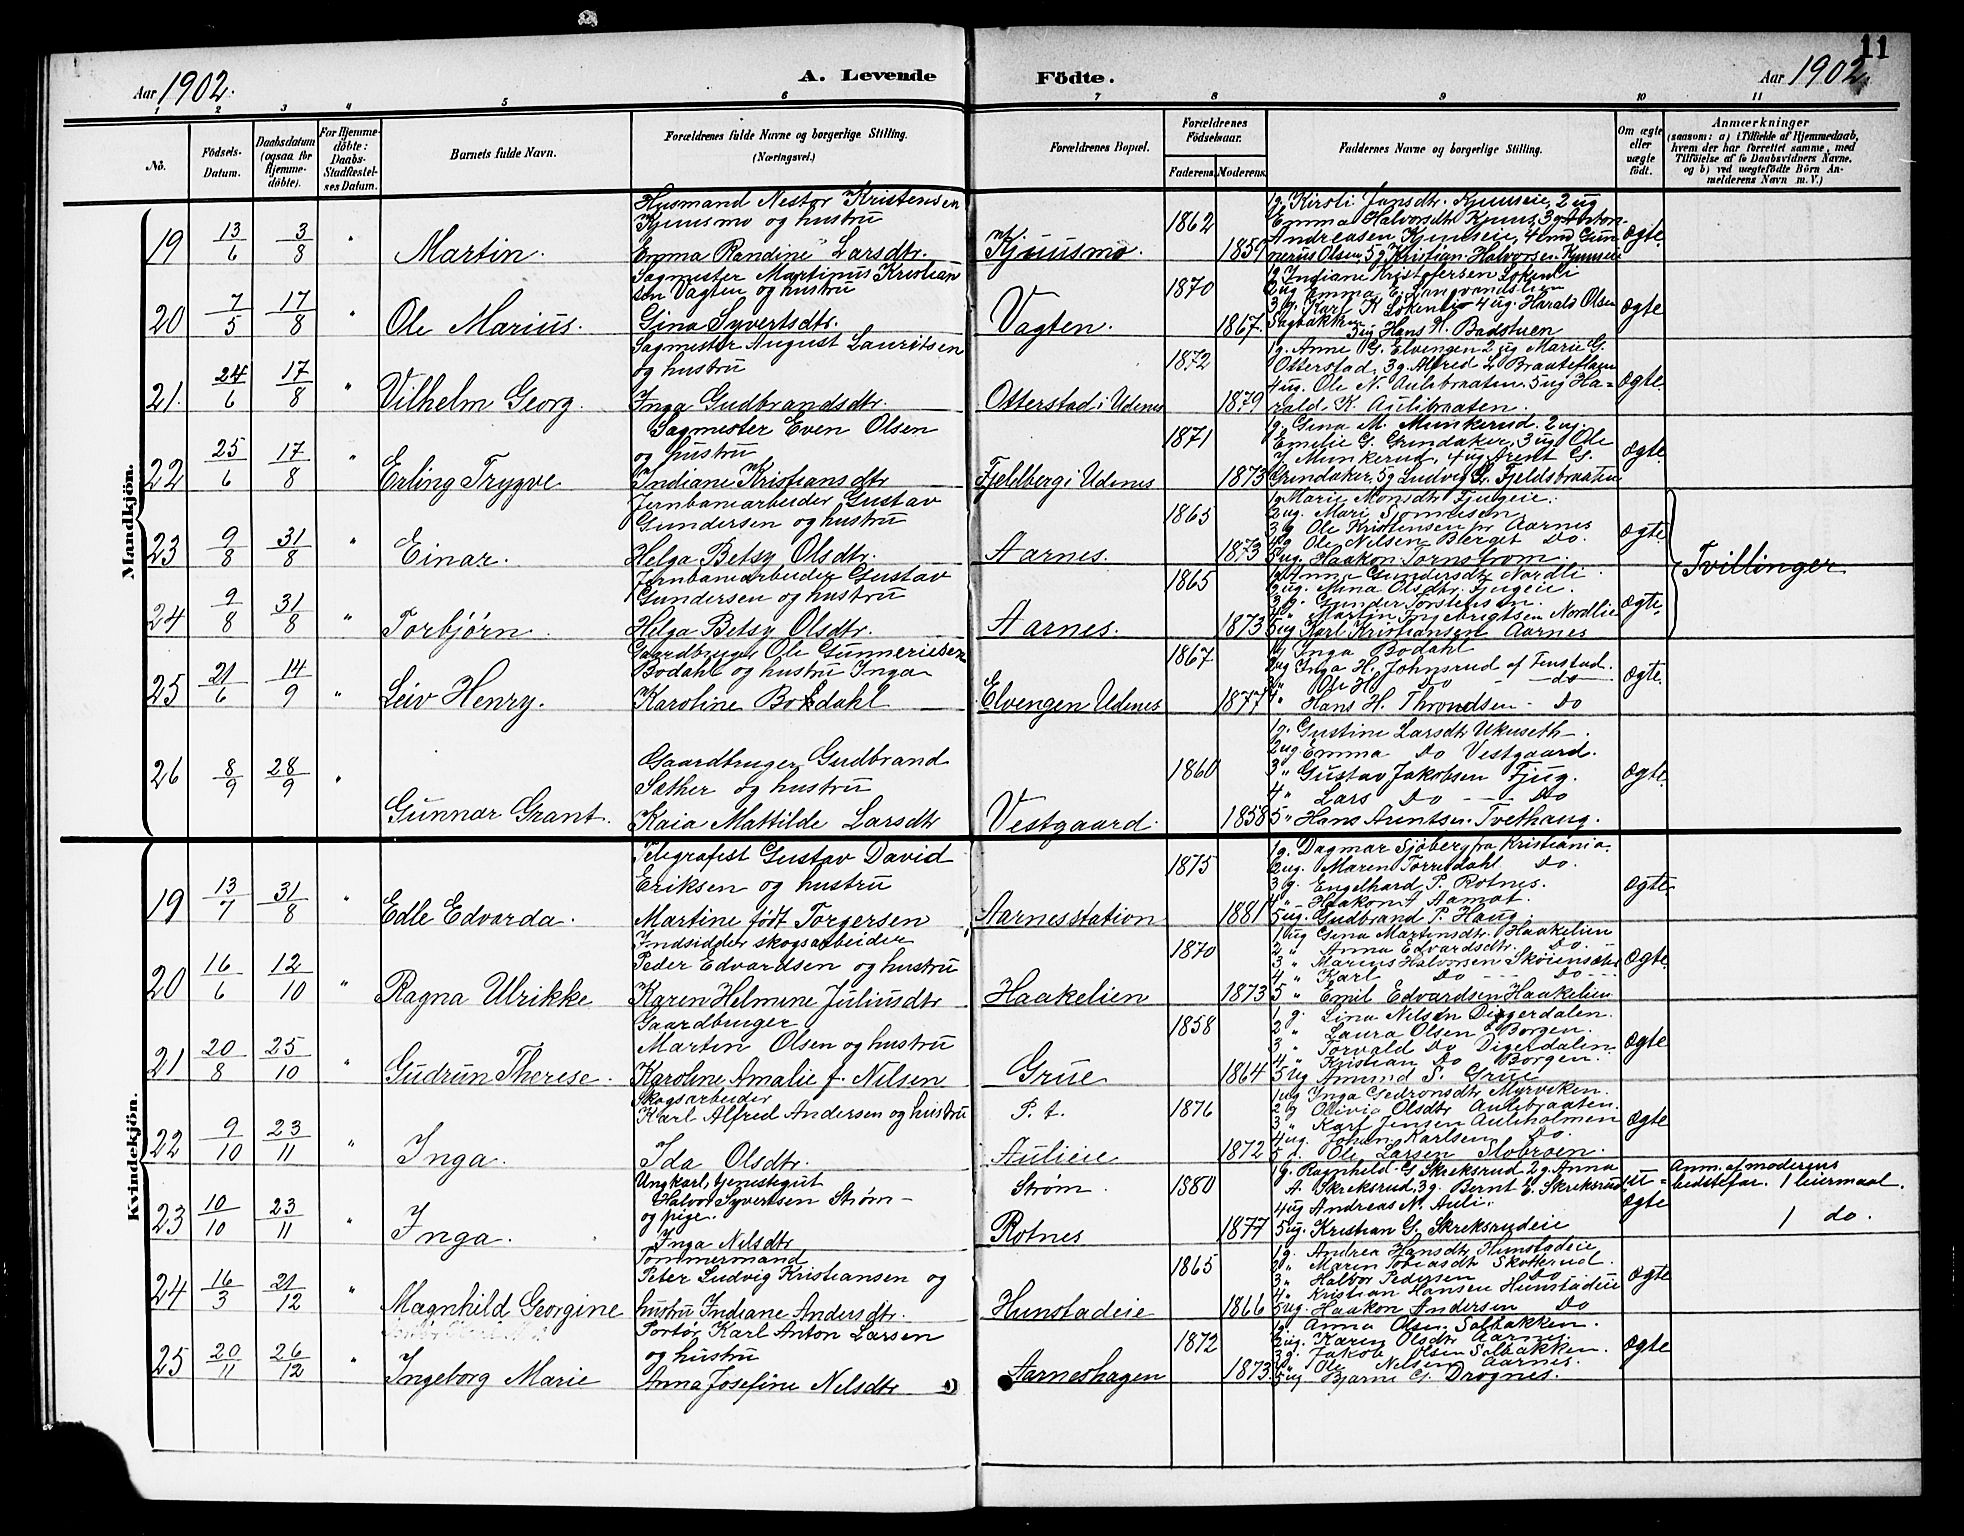 11
Aar 1902. A. Levende Födte. Aar 1902.
1 2 3 4 5 6 7 8 9 10 11
No.
Födsels-Datum.
Daabsdatum (ogsaa for Hjemmedöbte).
For Hjemmedöbte: Daabs-Stadfæstelses Datum.
Barnets fulde Navn.
Forældrenes fulde Navne og borgerlige Stilling.
(Næringsvei.)
Forældrenes Bopæl.
Forældrenes Födselsaar.
Faderens. Moderens.
Faddernes Navne og borgerlige Stilling.
Om ægte eller uægte födt.
Anmærkninger
(saasom: a) i Tilfælde af Hjemmedaab,
hvem der har forrettet samme, med
Tilföielse af to Daabsvidners Navne,
og b) ved uægtefödte Börn Anmelderens Navn m. V.)
Mandkjön.
19 13/6 3/8 " Martin.
Husmand Nestor Kristensen
Kjuusmo og hustru
Emma Randine Larsdtr.
Kjuusmo. 1862 1850
1g. Kirsti Jansdtr. Kjuuseie, 2 ug
Emma Halvorsdtr Kjuus, 3g Anton
Andreasen Kjuuseie, 4 emd Gun
nerus Olsen, 5g Kristian Halvorsen Kjuuseie
Ægte.
20 7/5 17/8 Ole Marius.
Sagmester Martinus Kristian
sen Vagten og hustru
Gina Syvertsdtr.
Vagten. 1870 1867.
1g Indiane Kristofersen Lökenli
2ug Emma E.
3g. Karl K Lökenlie 4 ug. Harald Olsen
Sagbakken 5ug Hans H. Badstuen
Ægte
21. 24/6 17/8 " Vilhelm Georg.
Sagmester August Lauritsen
og hustru
Inga Gudbrandsdtr.
Otterstad i Udenes 1872 1879
1g. Anne G. Elvengen 2 ug Marie G.
Otterstad, 3g Alfred L Braateflagen
4ug. Ole N. Aulibraaten. 5ug Ha=
rald K. Aulibraaten.
Ægte
22 25/6 17/8 " Erling Trygve
Sagmester Even Olsen
og hustru
Indiane Kristiansdtr
Fjeldberg i Udenes 1871 1873
1g. Gina M. Munkerud. 2ug
Emilie G. Grindaker, 3 ug Ole
Munkerud, 4 ug Arent G.
Grindaker, 5g Ludvig L. Fjeldsbraaten
Ægte.
23 9/8 31/8 " Einar.
Jernbanearbeider Gustav
Gundersen og hustru
Helga Betsy Olsdtr.
Aarnes. 1865 1873
1g Marie Monsdtr Fjugeie.
2ug. Mari Sjonnesen
3g Ole Kristensen pr Aarnes
4g Ole Nilsen Berget Do.
5ug. Haakon Tornstrom.
Ægte. Tvillinger
24 9/8 31/8 " Torbjörn
Jernbanearbeider Gustav
Gundersen og hustru
Helga Betsy Olsdtr.
Aarnes. 1865 1873
1g Anne Gundersdtr Nordli
2ug. Mina Olsdtr. Fjugeie.
3g. Gunder Torstensen
4" Martin Ingebrigtsen Nordlie
5ug Karl Kristiansen Aarnes
Ægte.
25 21/6 14/9 " Leiv Henry.
Gaardbruger Ole Gunneriusen
Bodahl og hustru Inga
Karoline Bodahl
Elvengen Udenes 1867 1877
1g Inga Bodahl
2ug Inga H. Johnsrud af Fenstad.
3" Ole H. Do - do
4" Hans H. Throndsen - Do
Ægte.
26 8/9 28/9 " Gunnar Grant.
Gaardbruger Gudbrand
Sæther og hustru
Kaia Mattilde Larsdtr
Vestgaard. 1860 1858
1g. Gustine Larsdtr Ukuseth
2ug. Emma Do Vestgaard.
3" Gustav Jakobsen Fjug.
4" Lars Do - - - Do
5" Hans Arntsen Tvethaug.
Ægte.
Kvindekjön.
19 13/7 31/8 " Edle Edvarda.
Telegrafist Gustav David
Eriksen og hustru
Martine född Torgersen
Aarnesstation 1875 1881
1g. Dagmar Sjöberg fra Kristiania.
2ug. Maren Torresdahl Do.
3g. Engelhard P. Rotnes.
4" Haakon A Aamot.
5ug. Gudbrand P. Haug.
Ægte
20 16/6 12/10 " Ragna Ulrikke
Indsidder skogsarbeider
Peder Edvardsen og hustru
Karen Helmine Juliusdtr
Haakelien 1870 1873
1ug Gina Martinsdtr. Haakelien
2" Anna Edvardsdtr. Do.
3" Marius Halvorsen
4" Karl Do - - - Do - -
5" Emil Edvardsen Haakelien
Ægte.
21 20/8 25/10 " Gudrun Therese.
Gaardbruger
Martin Olsen og hustru
Karoline Amalie f. Nilsen
Grue 1858 1864
1g. Lina Nilsen Digerdalen.
2" Laura Olsen Borgen.
3" Torvald Do Digerdalen
4" Kristian Do Borgen.
5ug Amund S. Grue
Ægte
22 9/10 23/11 " Inga.
Skogsarbeider
Karl Alfred Andersen og hustru
Ida Olsdtr.
P. t.
Aulieie 1876 1872
1ug Inga Pedronsdtr Myrviken.
2g Olivia Olsdtr Aulibraaten.
3" Karl Jensen Auliholmen
4ug. Johan Karlsen Do.
5 Ole Larsen Slobroen.
Ægte
23 10/10 23/11 " Inga.
Ungkarl, tjenestegut
Halvor Syvertsen Strøm -
og pige.
Inga Nilsdtr
Strøm.
Rotnes 1880 1877
1g. Ragnhild G Skreksrud 2g. Anna
A. Skreksrud, 3g. Bernt E. Skreksrud
4ug Andreas N. Auli.
5ug. Kristian G. Skreksrudeie
u=
Ægte
Anm. af moderens
bedstefar. 1 leiermaal.
1 do.
24 16/3 21/12 " Magnhild Georgine
Tömmermand
Peter Ludvig Kristiansen og
hustru Indiane Andersdtr.
Hunstadeie 1865 1866
1g. Andrea Hansdtr Hunstadeie
2" Maren Tobiasdtr Skotterud.
3" Halvor Pedersen Do
4" Kristian Hansen Hunstadeie
5ug. Haakon Andersen Do
Ægte
25 20/11 26/12 " Ingeborg Marie
Portör Karl Anton Larsen
og hustru
Anna Josefine Nilsdtr
Aarneshagen 1872 1873
1g Anna Olsen Solbakken.
2ug. Karen Olsdtr Aarnes.
3g. Jakob Olsen Solbakken.
4" Ole Nilsen Aarnes.
5ug Bjarne G. Drognes.
Ægte